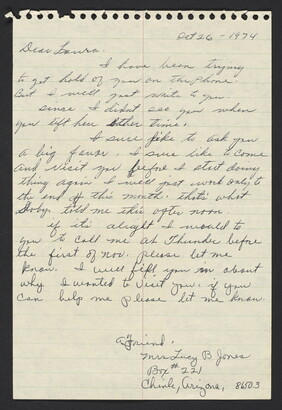 Oct 26 - 1974
Dear Laura.
I have been trying
to get hold of you on the Phone.
But I will just write to you
since I didnt see you when
you left here other time.
I sure like to ask you
a big favor. I sure like to come
and visit you before I start doing
thing again I will just work only to
the end of this month. that's what
told me this after noon.
if it's alright I would to
you to call me at Thunder before
the first of nov. please let me
know. I will fill you in about
why I wanted to visit you. if you
can help me please let me know.
A Friend.
Mrs Lucy B Jones
Box # 221
Chinle, Arizona, 86503